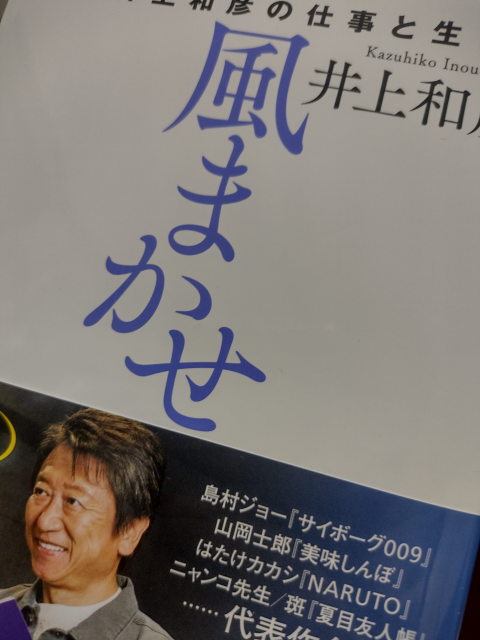 井上和彦の仕事と生
風まかせ
Kazuhiko Inou
井上和
島村ジョー『サイボーグ009』
山岡士郎『美味しんぼ』
はたけカカシ『NARUTO』
ニャンコ先生/斑『夏目友人
……代表作